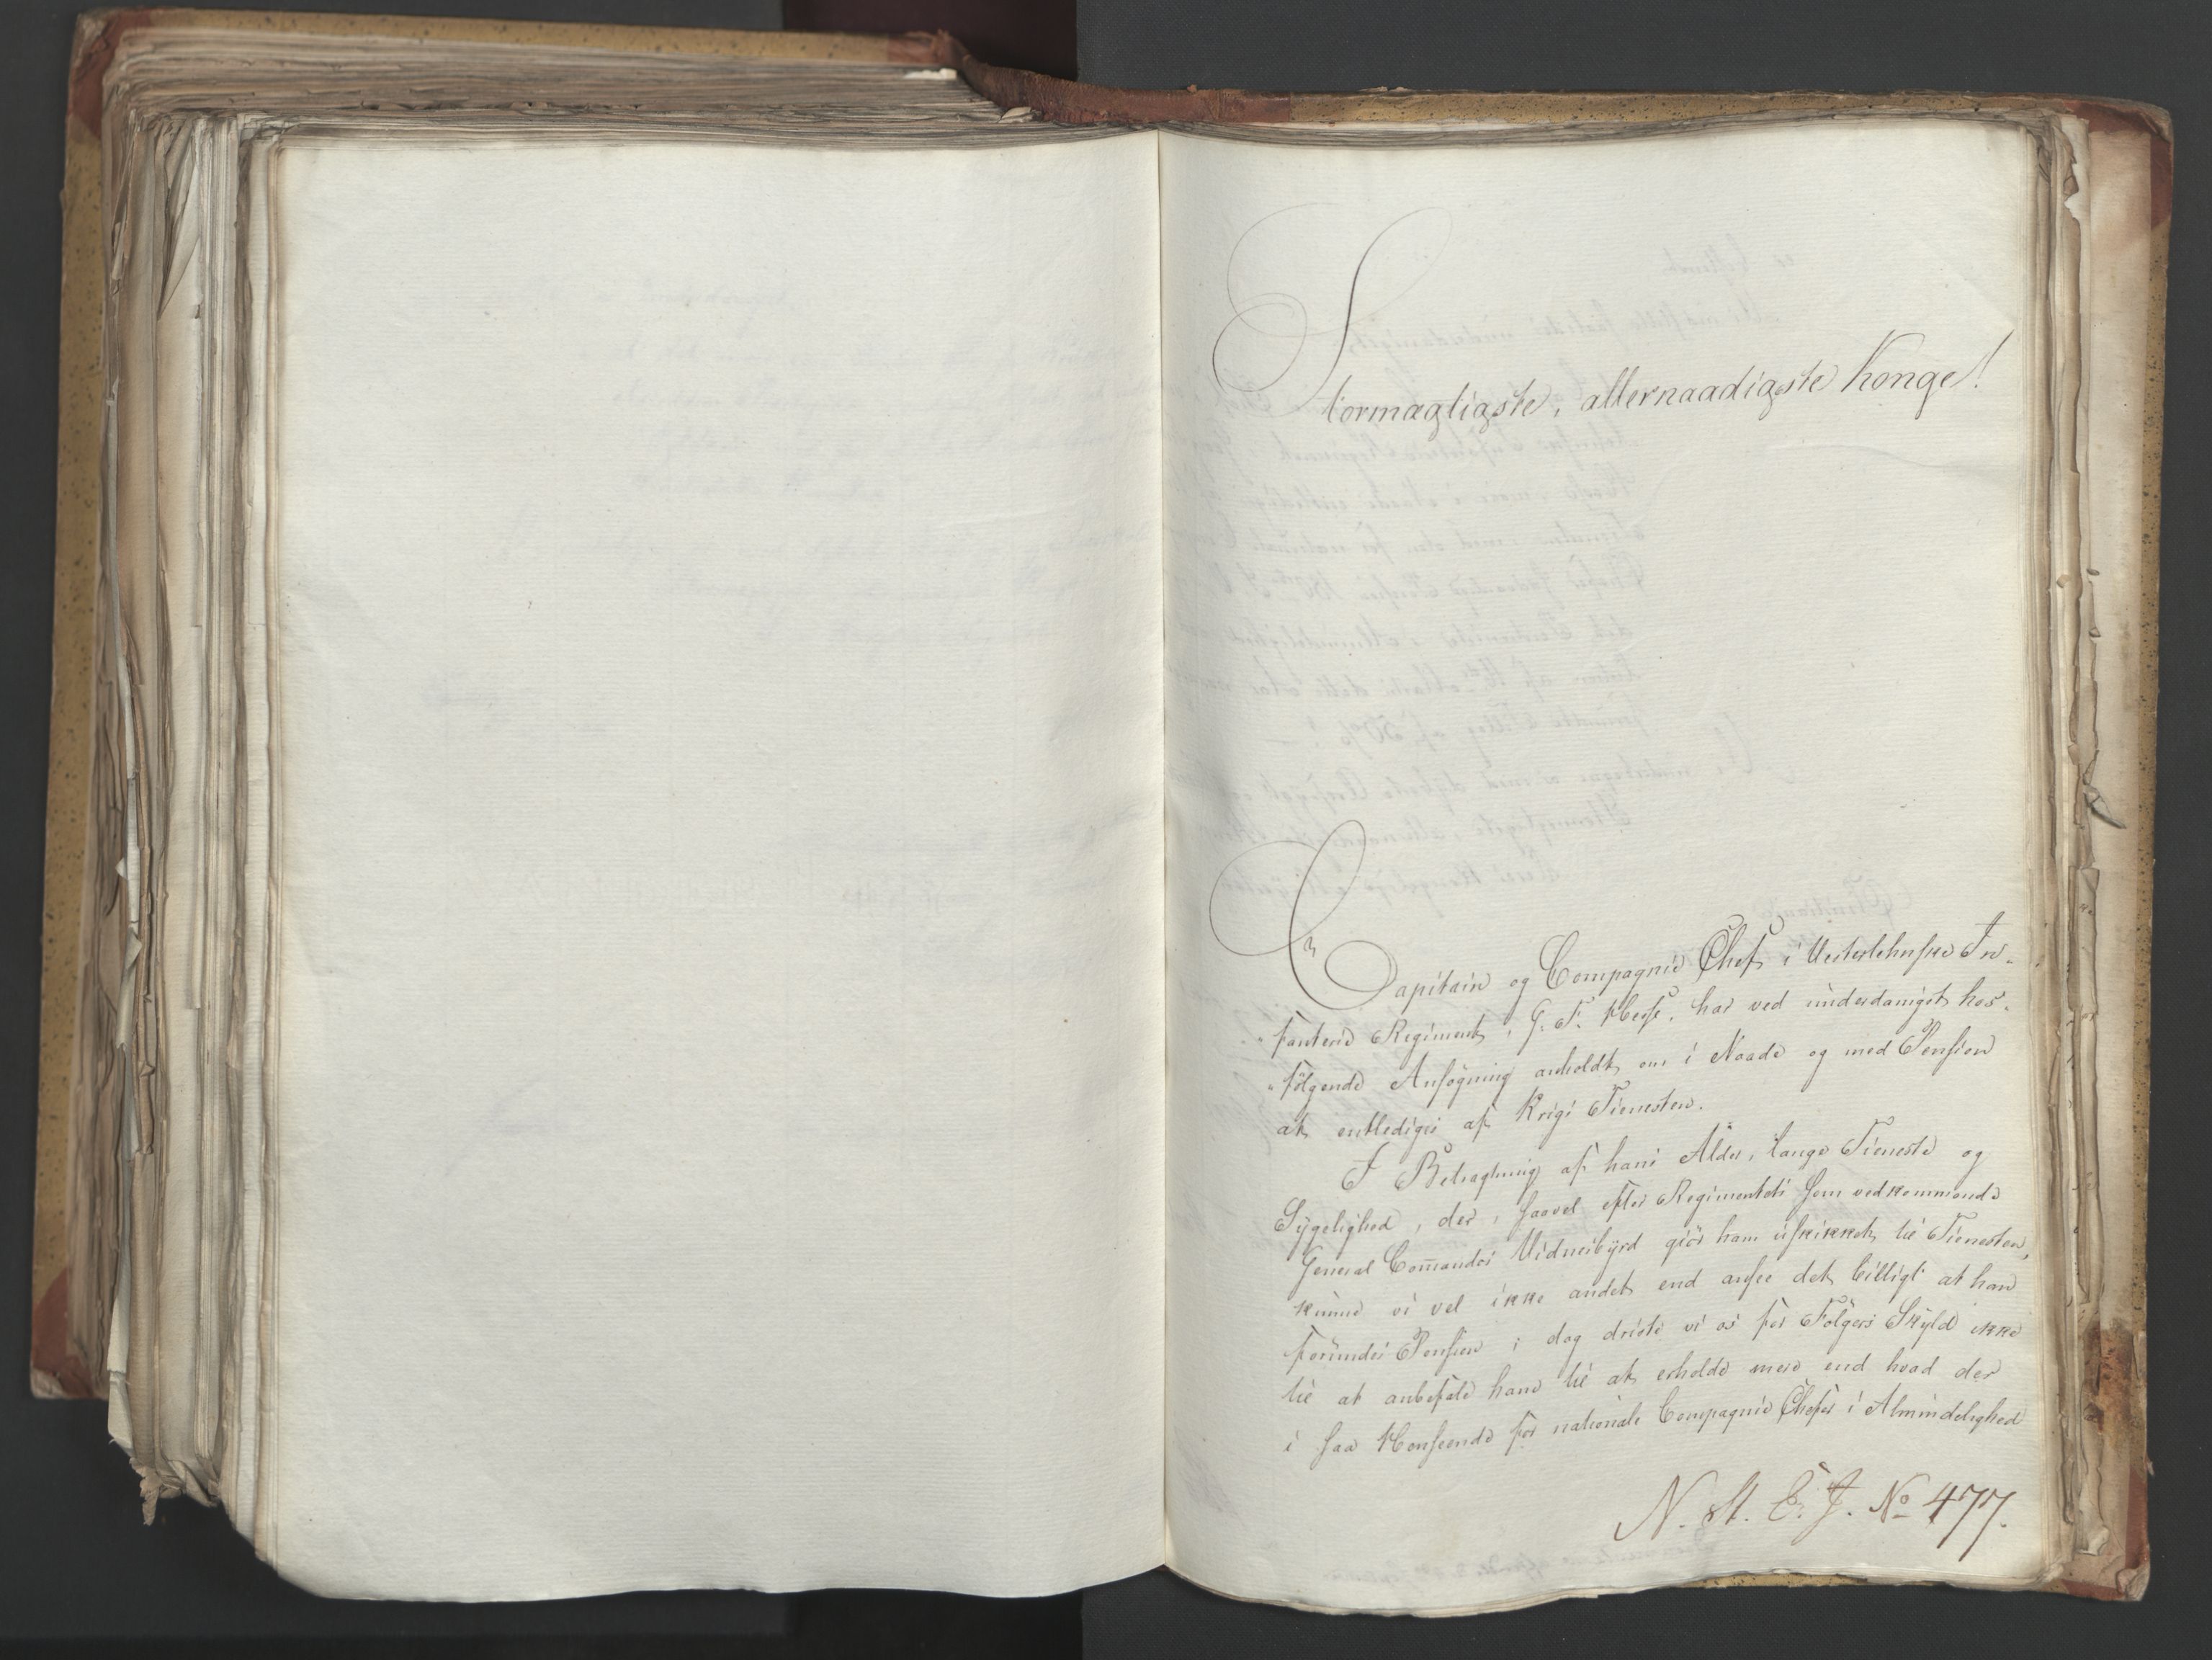 Stormægtigste, allernaadigste Konge!
Capitain og Compagnie Chef i Vesterlehnske In-
"fanterie Regiment, G. F. Hesse, har ved underdanigst hos-
"følgende Ansøgning anholdt om i Naade og med Pension
at entlediges af Krigs Tienesten.
I Betragtning af hans Alder, lange Tieneste og
Sygelighed, der, saavel efter Regimentets som vedkommende
General Com̄andos Vidnesbyrd giør ham uskikket til Tienesten,
kunne vi vel ikke andet end ansee det billigt at han
forundes Pension; dog driste vi os for Følgers Skyld ikke
til at anbefale ham til at erholde mere end hvad der
i saa Henseende for nationale Compagnie Chefer i Almindelighed
N. St. E. J. No 477.